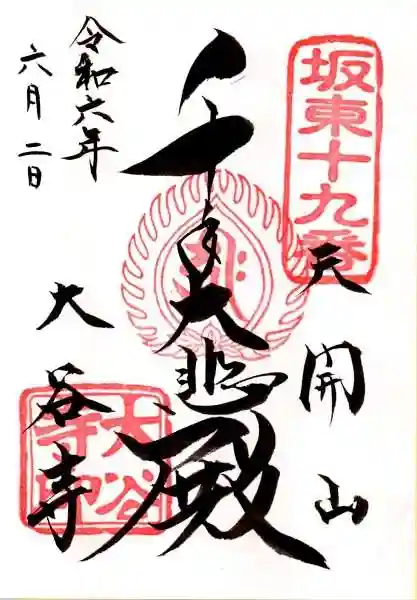 坂東十九番
天開山
千手大悲殿
大谷寺
大谷寺印
令和六年
六月二日